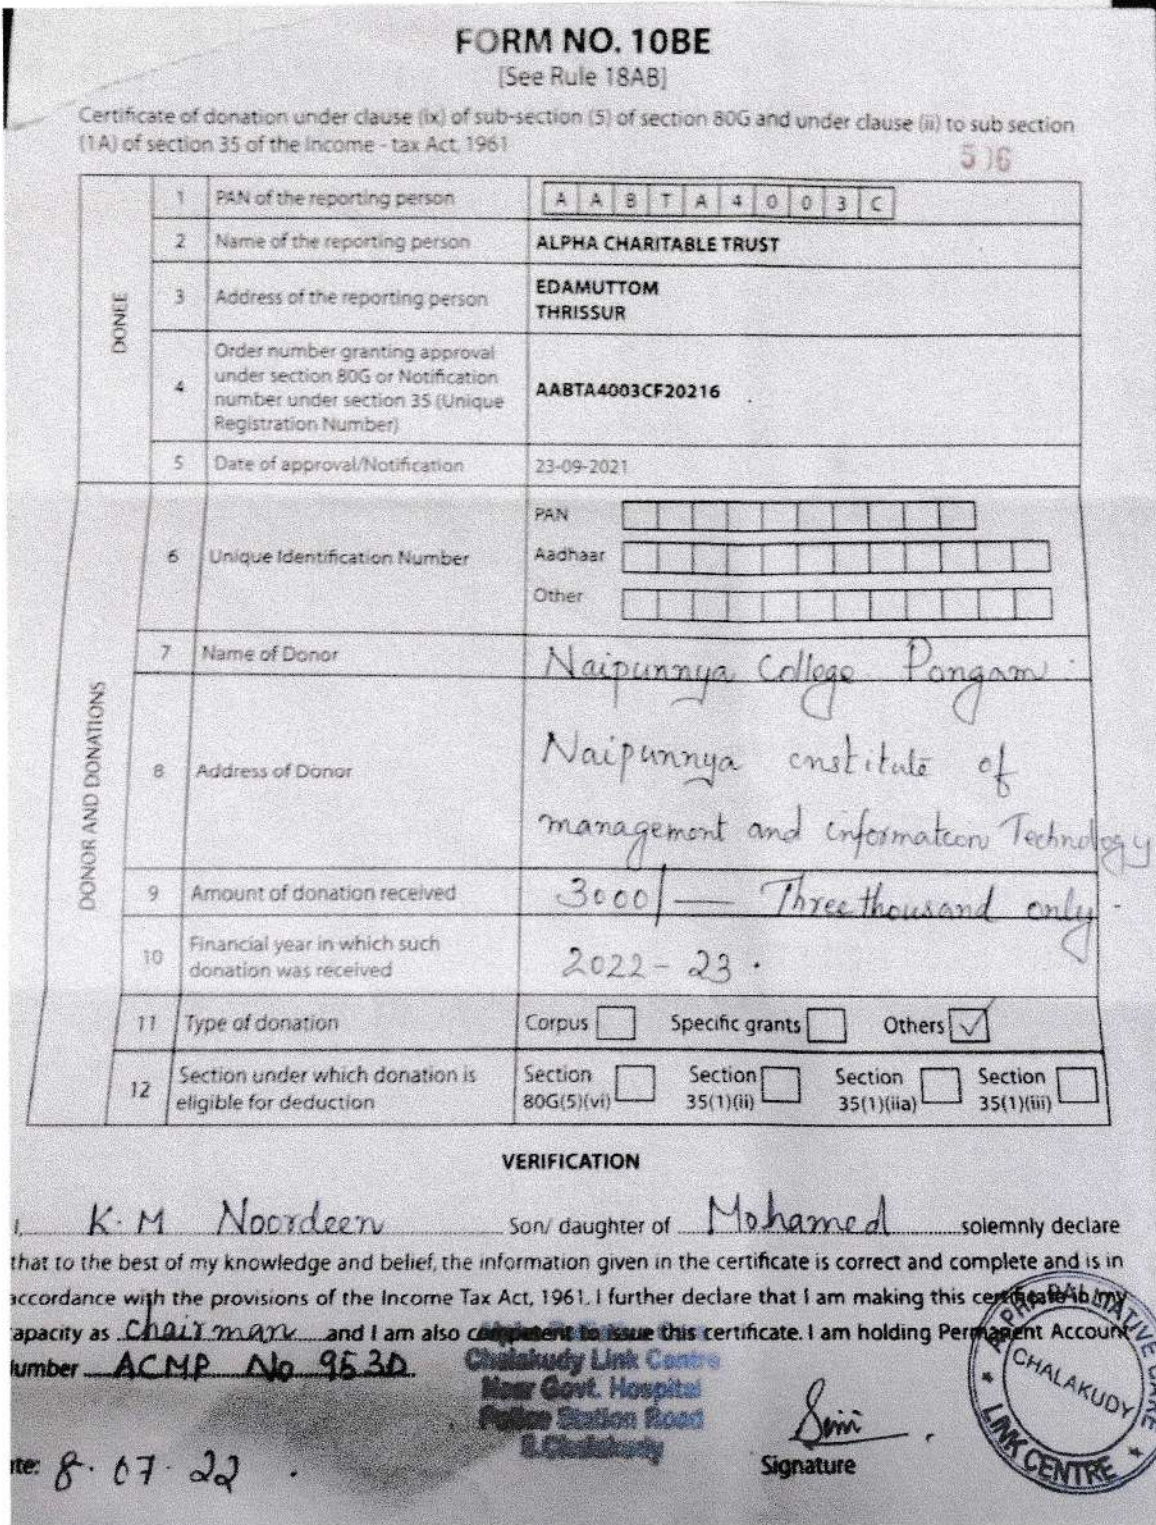 FORM NO. 10BE
[See Rule 18AB]
Certificate of donation under clause (ix) of sub-section (5) of section 80G and under clause (ii) to sub section
(1A) of section 35 of the Income - tax Act, 1961
DONEE
1 PAN of the reporting person A A B T A 4 0 0 3 C
2 Name of the reporting person ALPHA CHARITABLE TRUST
3 Address of the reporting person EDAMUTTOM
THRISSUR
4 Order number granting approval
under section 80G or Notification
number under section 35 (Unique
Registration Number) AABTA4003CF20216
5 Date of approval/Notification 23-09-2021
DONOR AND DONATIONS
6 Unique Identification Number PAN
Aadhaar
Other
7 Name of Donor Naipunnya College Pongam
8 Address of Donor Naipunnya institute of
management and information Technology
9 Amount of donation received 3000/— Three thousand only
10 Financial year in which such
donation was received 2022-23.
11 Type of donation Corpus Specific grants Others ✓
12 Section under which donation is
eligible for deduction Section
80G(5)(vi) Section
35(1)(ii) Section
35(1)(iia) Section
35(1)(iii)
VERIFICATION
I, K. M Noordeen Son/ daughter of Mohamed solemnly declare
that to the best of my knowledge and belief, the information given in the certificate is correct and complete and is in
accordance with the provisions of the Income Tax Act, 1961. I further declare that I am making this certificate in my
apacity as Chairman and I am also competent to issue this certificate. I am holding Permanent Account
umber ACMP No 9530
Chalakudy Link Centre
Near Govt. Hospital
Police Station Road
Chalakudy
te: 8.07.22
Signature
ALPHA PALLIATIVE CARE
CHALAKUDY
LINK CENTRE